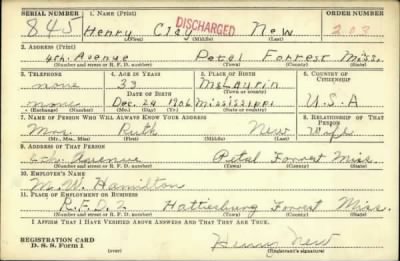 SERIAL NUMBER
1. NAME (Print)
ORDER NUMBER
845
DISCHARGED
Henry Clay New
203
(First) (Middle) (Last)
2. ADDRESS (Print)
4th. Avenue Petal Forrest Miss.
(Number and street or R. F. D. number) (Town) (County) (State)
3. TELEPHONE
4. AGE IN YEARS
5. PLACE OF BIRTH
6. COUNTRY OF CITIZENSHIP
none
33
McLaurin
DATE OF BIRTH
none
Dec. 29 1906
Mississippi
U.S.A
(Exchange) (No.) (Mo.) (Day) (Yr.) (State or country)
7. NAME OF PERSON WHO WILL ALWAYS KNOW YOUR ADDRESS
RELATIONSHIP OF THAT PERSON
Mrs. Ruth New Wife
(Mr., Mrs., Miss) (First) (Middle) (Last)
9. ADDRESS OF THAT PERSON
4th. Avenue Petal Forrest Miss
(Number and street or R. F. D. number) (Town) (County) (State)
10. EMPLOYER'S NAME
W. Hamilton
11. PLACE OF EMPLOYMENT OR BUSINESS
R.F.D. 2 Hattiesburg Forrest Miss.
(Number and street or R. F. D. number) (Town) (County) (State)
I AFFIRM THAT I HAVE VERIFIED ABOVE ANSWERS AND THAT THEY ARE TRUE.
REGISTRATION CARD
D. S. S. Form 1
(over)
Henry New
(Registrant's signature)